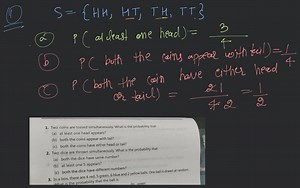 ① S = {HH, HT, TH, TT}
ⓐ P( atleast one head) = 3/4
ⓑ P( both the coins appear with tail) = 1/4
ⓒ P(both the coin have either head
or tail) = 2/4 = 1/2
1. Two coins are tossed simultaneously. What is the probability that
(a) at least one head appears?
(b) both the coins appear with tail?
(c) both the coins have either head or tail?
2. Two dice are thrown simultaneously. What is the probability that
(a) both the dice have same number?
(b) at least one 5 appears?
(c) both the dice have different numbers?
3. In a box, there are 4 red, 5 green, 6 blue and 2 yellow balls. One ball is drawn at random.
What is the probability that the ball is